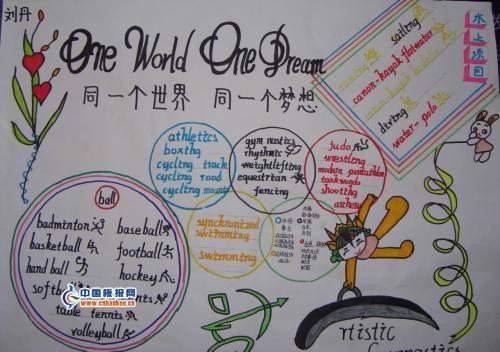 刘丹
One World One Dream
同一个世界 同一个梦想
水上项目
rowing
sailing
canoe-kayak flatwater
diving
water-polo
athletics
boxing
cycling track
cycling road
cycling mounta
gym nastics
rhythmic
weightlifting
equestrian
fencing
judo
wrestling
modern pentathlon
taekwondo
shooting
archery
synchronized
swimming
swimming
ball
badminton baseball
basketball football
hand ball hockey
table tennis
volleyball
中国板报网
www.cnbanbao.cn
rtistic
Gymnastics